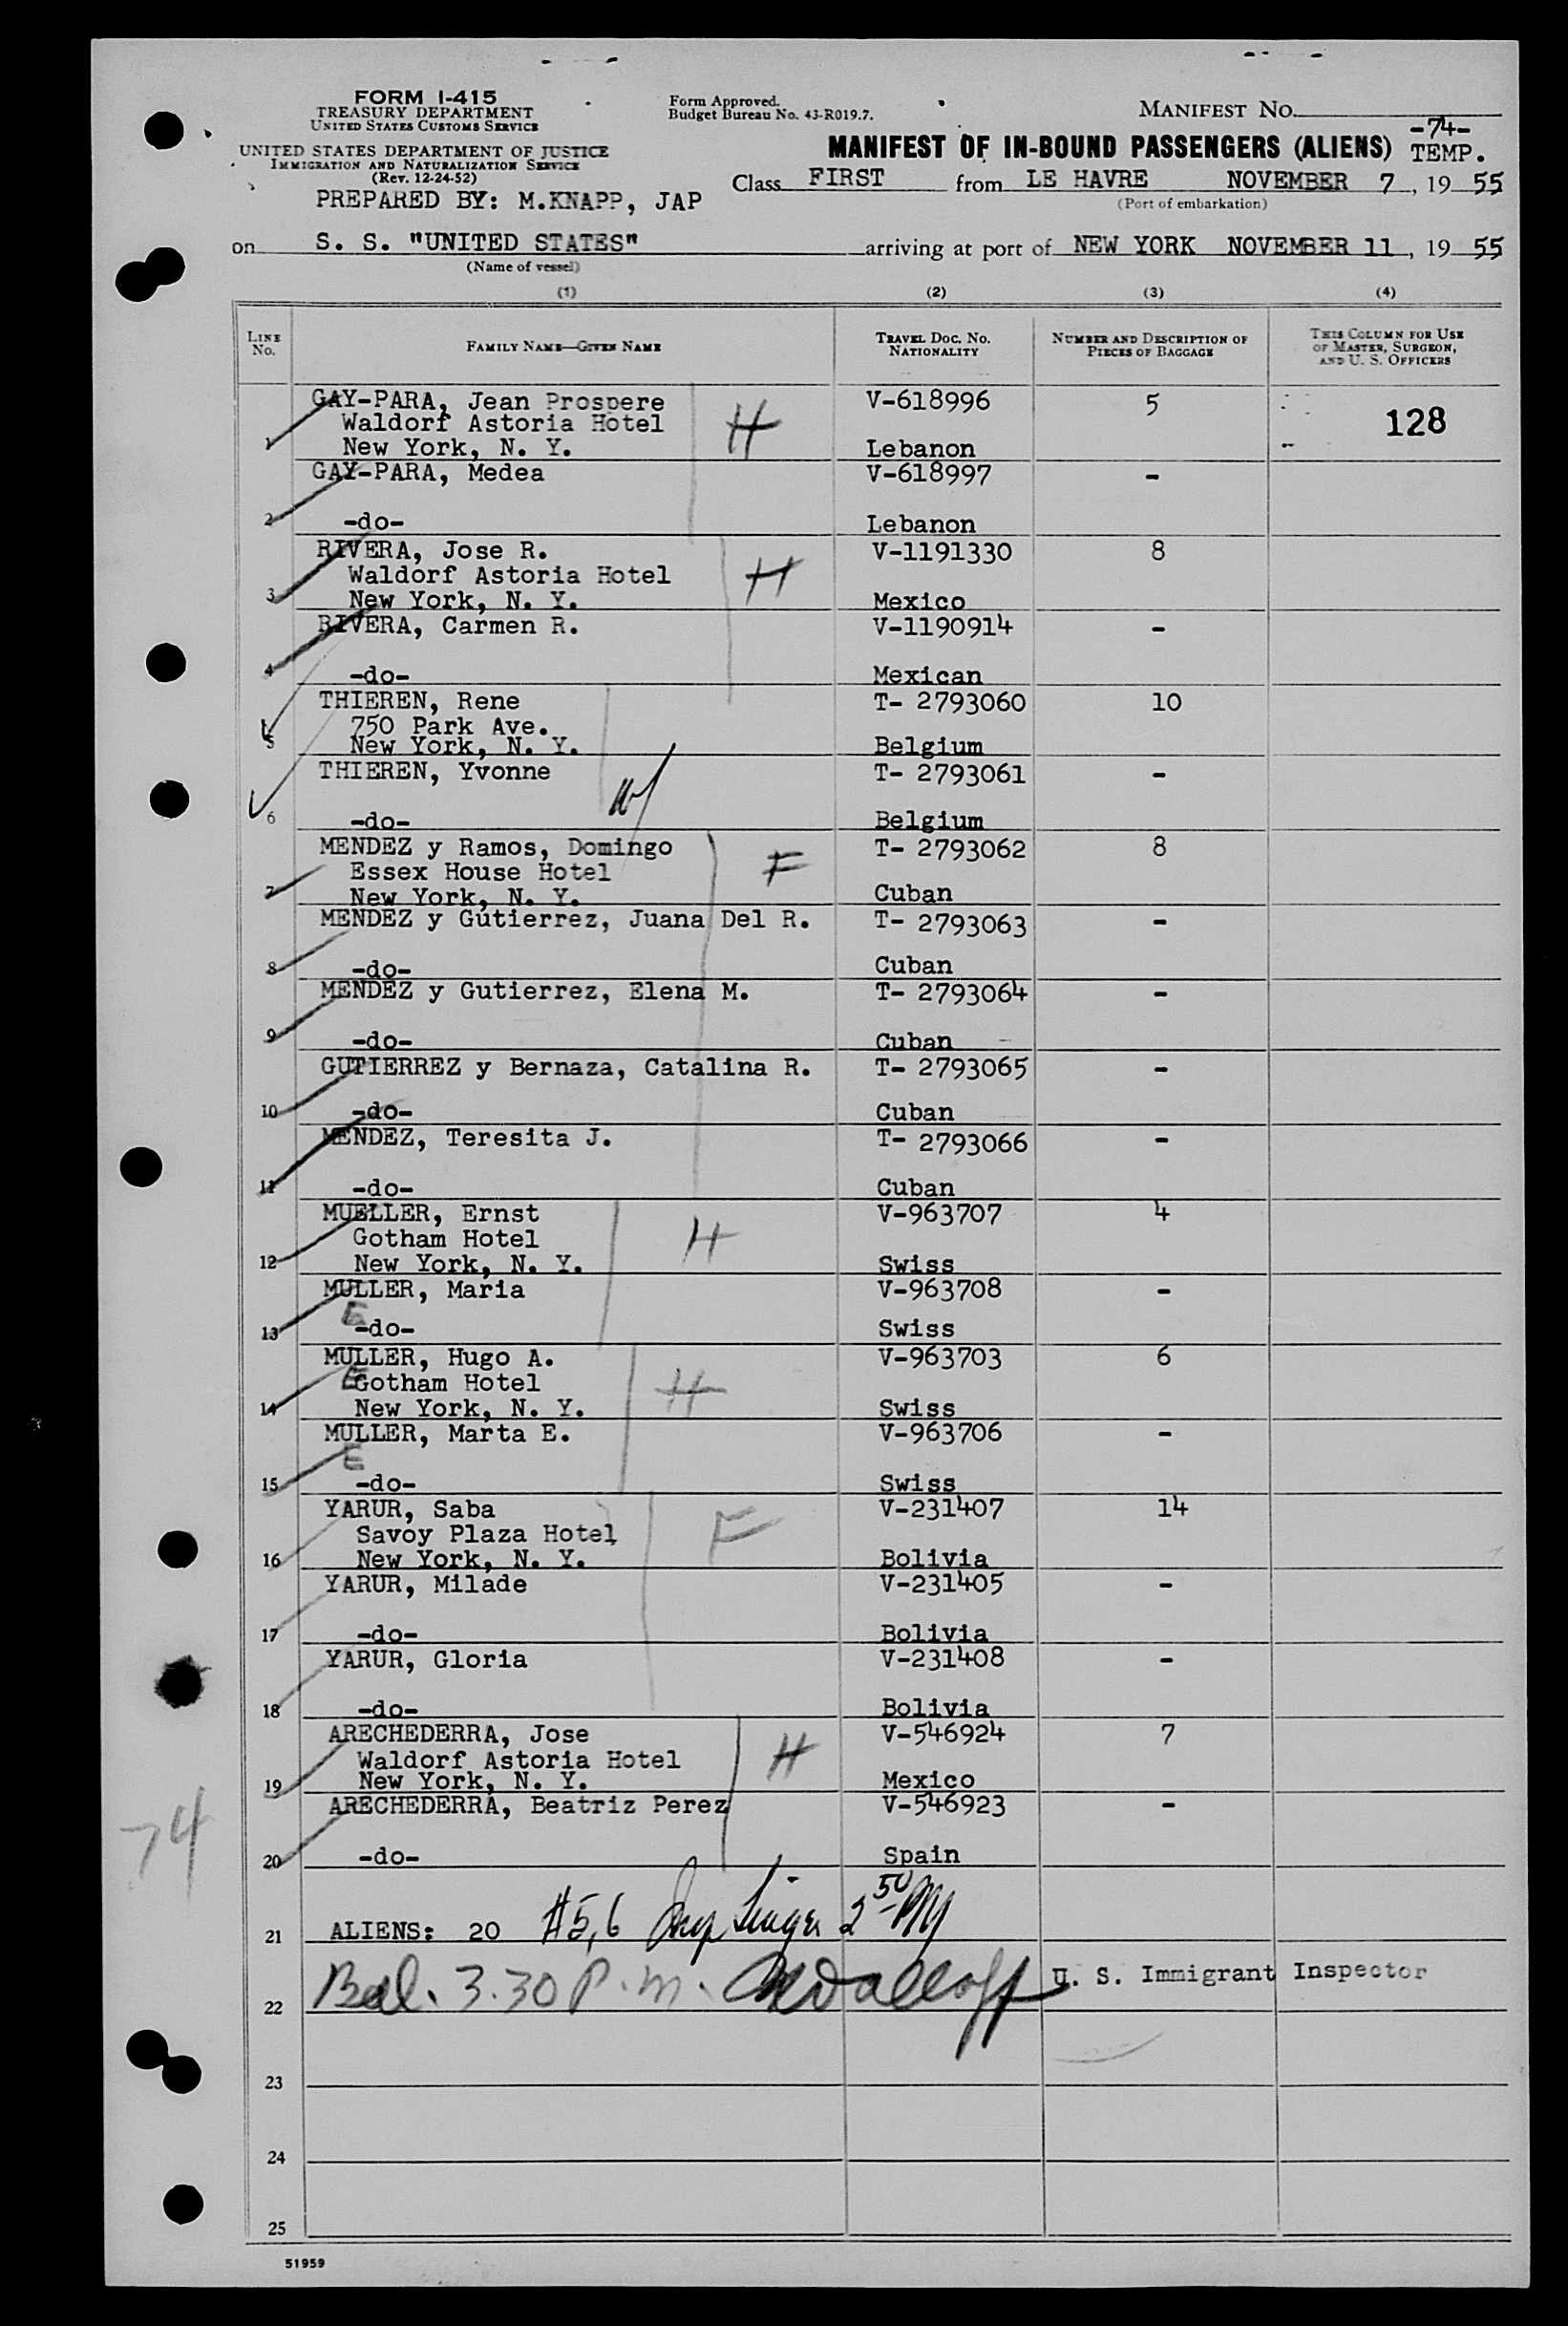 FORM I-415
TREASURY DEPARTMENT
UNITED STATES CUSTOMS SERVICE
UNITED STATES DEPARTMENT OF JUSTICE
IMMIGRATION AND NATURALIZATION SERVICE
(Rev. 12-24-52)
PREPARED BY: M.KNAPP, JAP
Form Approved.
Budget Bureau No. 43-R019.7.
MANIFEST NO.
-74-
MANIFEST OF IN-BOUND PASSENGERS (ALIENS) TEMP.
Class FIRST from LE HAVRE NOVEMBER 7, 1955
(Port of embarkation)
on S. S. "UNITED STATES" arriving at port of NEW YORK NOVEMBER 11, 1955
(Name of vessel)
(1) (2) (3) (4)
LINE NO. FAMILY NAME—GIVEN NAME TRAVEL DOC. NO. NATIONALITY NUMBER AND DESCRIPTION OF PIECES OF BAGGAGE THIS COLUMN FOR USE OF MASTER, SURGEON, AND U. S. OFFICERS
GAY-PARA, Jean Prospere V-618996 5 128
Waldorf Astoria Hotel H
1 New York, N. Y. Lebanon
GAY-PARA, Medea V-618997 -
2 -do- Lebanon
RIVERA, Jose R. V-1191330 8
Waldorf Astoria Hotel H
3 New York, N. Y. Mexico
RIVERA, Carmen R. V-1190914 -
4 -do- Mexican
THIEREN, Rene T- 2793060 10
750 Park Ave.
5 New York, N. Y. Belgium
THIEREN, Yvonne T- 2793061 -
6 -do- Belgium
MENDEZ y Ramos, Domingo T- 2793062 8
Essex House Hotel F
7 New York, N. Y. Cuban
MENDEZ y Gutierrez, Juana Del R. T- 2793063 -
8 -do- Cuban
MENDEZ y Gutierrez, Elena M. T- 2793064 -
9 -do- Cuban
GUTIERREZ y Bernaza, Catalina R. T- 2793065 -
10 -do- Cuban
MENDEZ, Teresita J. T- 2793066 -
11 -do- Cuban
MUELLER, Ernst V-963707 4
Gotham Hotel H
12 New York, N. Y. Swiss
MULLER, Maria V-963708 -
E
13 -do- Swiss
MULLER, Hugo A. V-963703 6
E Gotham Hotel H
14 New York, N. Y. Swiss
MULLER, Marta E. V-963706 -
E
15 -do- Swiss
YARUR, Saba V-231407 14
Savoy Plaza Hotel F
16 New York, N. Y. Bolivia
YARUR, Milade V-231405 -
17 -do- Bolivia
YARUR, Gloria V-231408 -
18 -do- Bolivia
ARECHEDERRA, Jose V-546924 7
Waldorf Astoria Hotel H
19 New York, N. Y. Mexico
ARECHEDERRA, Beatriz Perez V-546923 -
74
20 -do- Spain
21 ALIENS: 20 #5,6 Insp Singer 2 50 PM
22 Bal. 3.30 P.m. U. S. Immigrant Inspector
23
24
25
51959